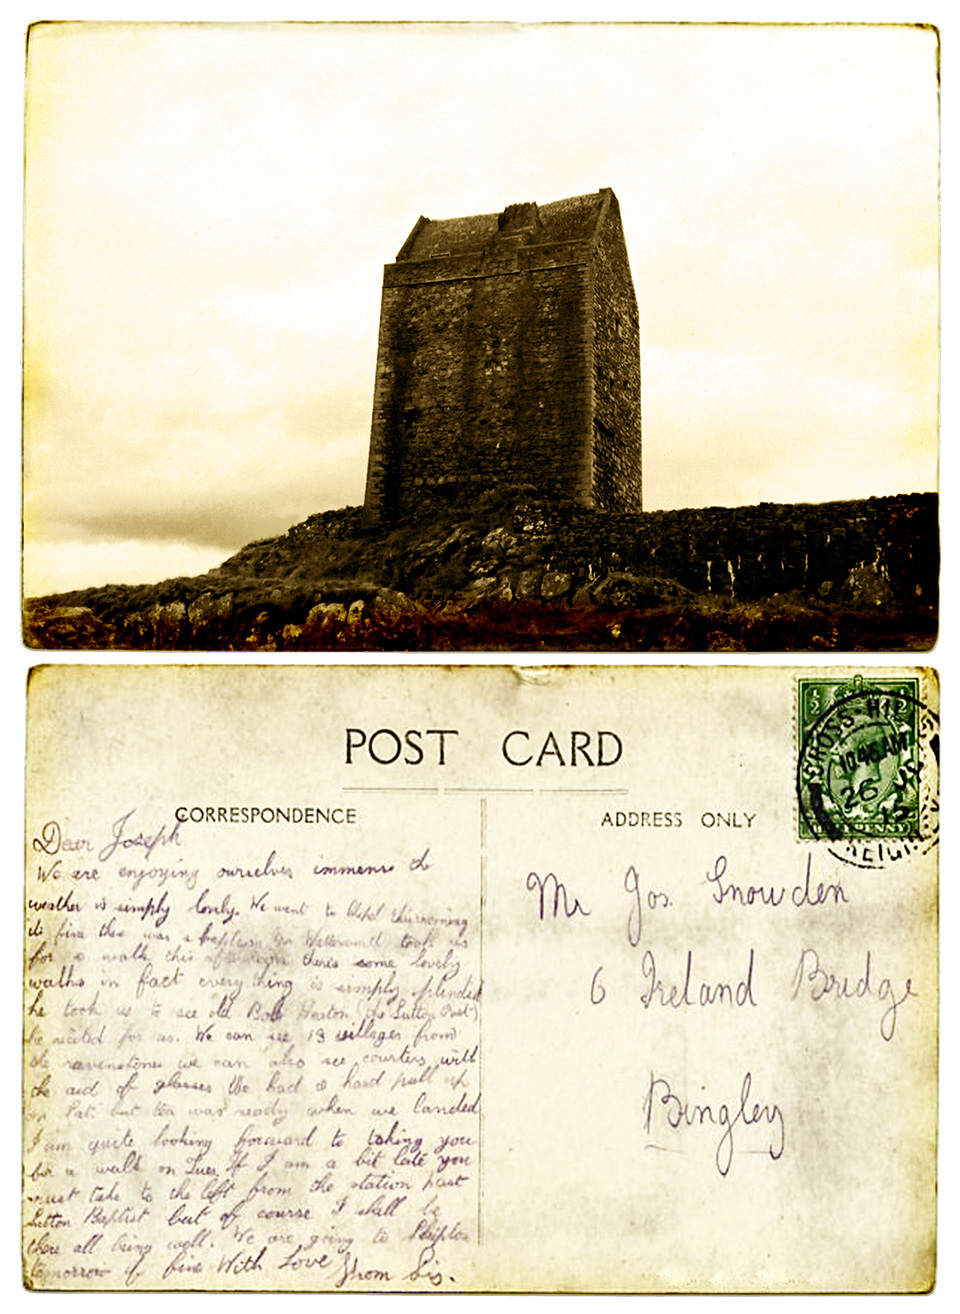 POST CARD
CORRESPONDENCE
ADDRESS ONLY
½
CROSS-HI
10.45AM
26
Dear Joseph
We are enjoying ourselves immense
weather is simply lovely. We went to this morning
fine took us
for a walk this afternoon theres some lovely
walks in fact every thing is simply splendid
he took us to see old Bob Heaton (the Sutton Poet)
he recited for us. We can see 13 villages from
the ravenstones we can also see courters with
the aid of glasses We had a hard pull up
on Sat. but tea was ready when we landed
I am quite looking forward to taking you
for a walk on Tues. If I am a bit late you
must take to the left from the station past
Sutton Baptist but of course I shall be
there all being well. We are going to
tomorrow if fine With Love from Sis.
Mr Jos. Snowden
6 Ireland Bridge
Bingley